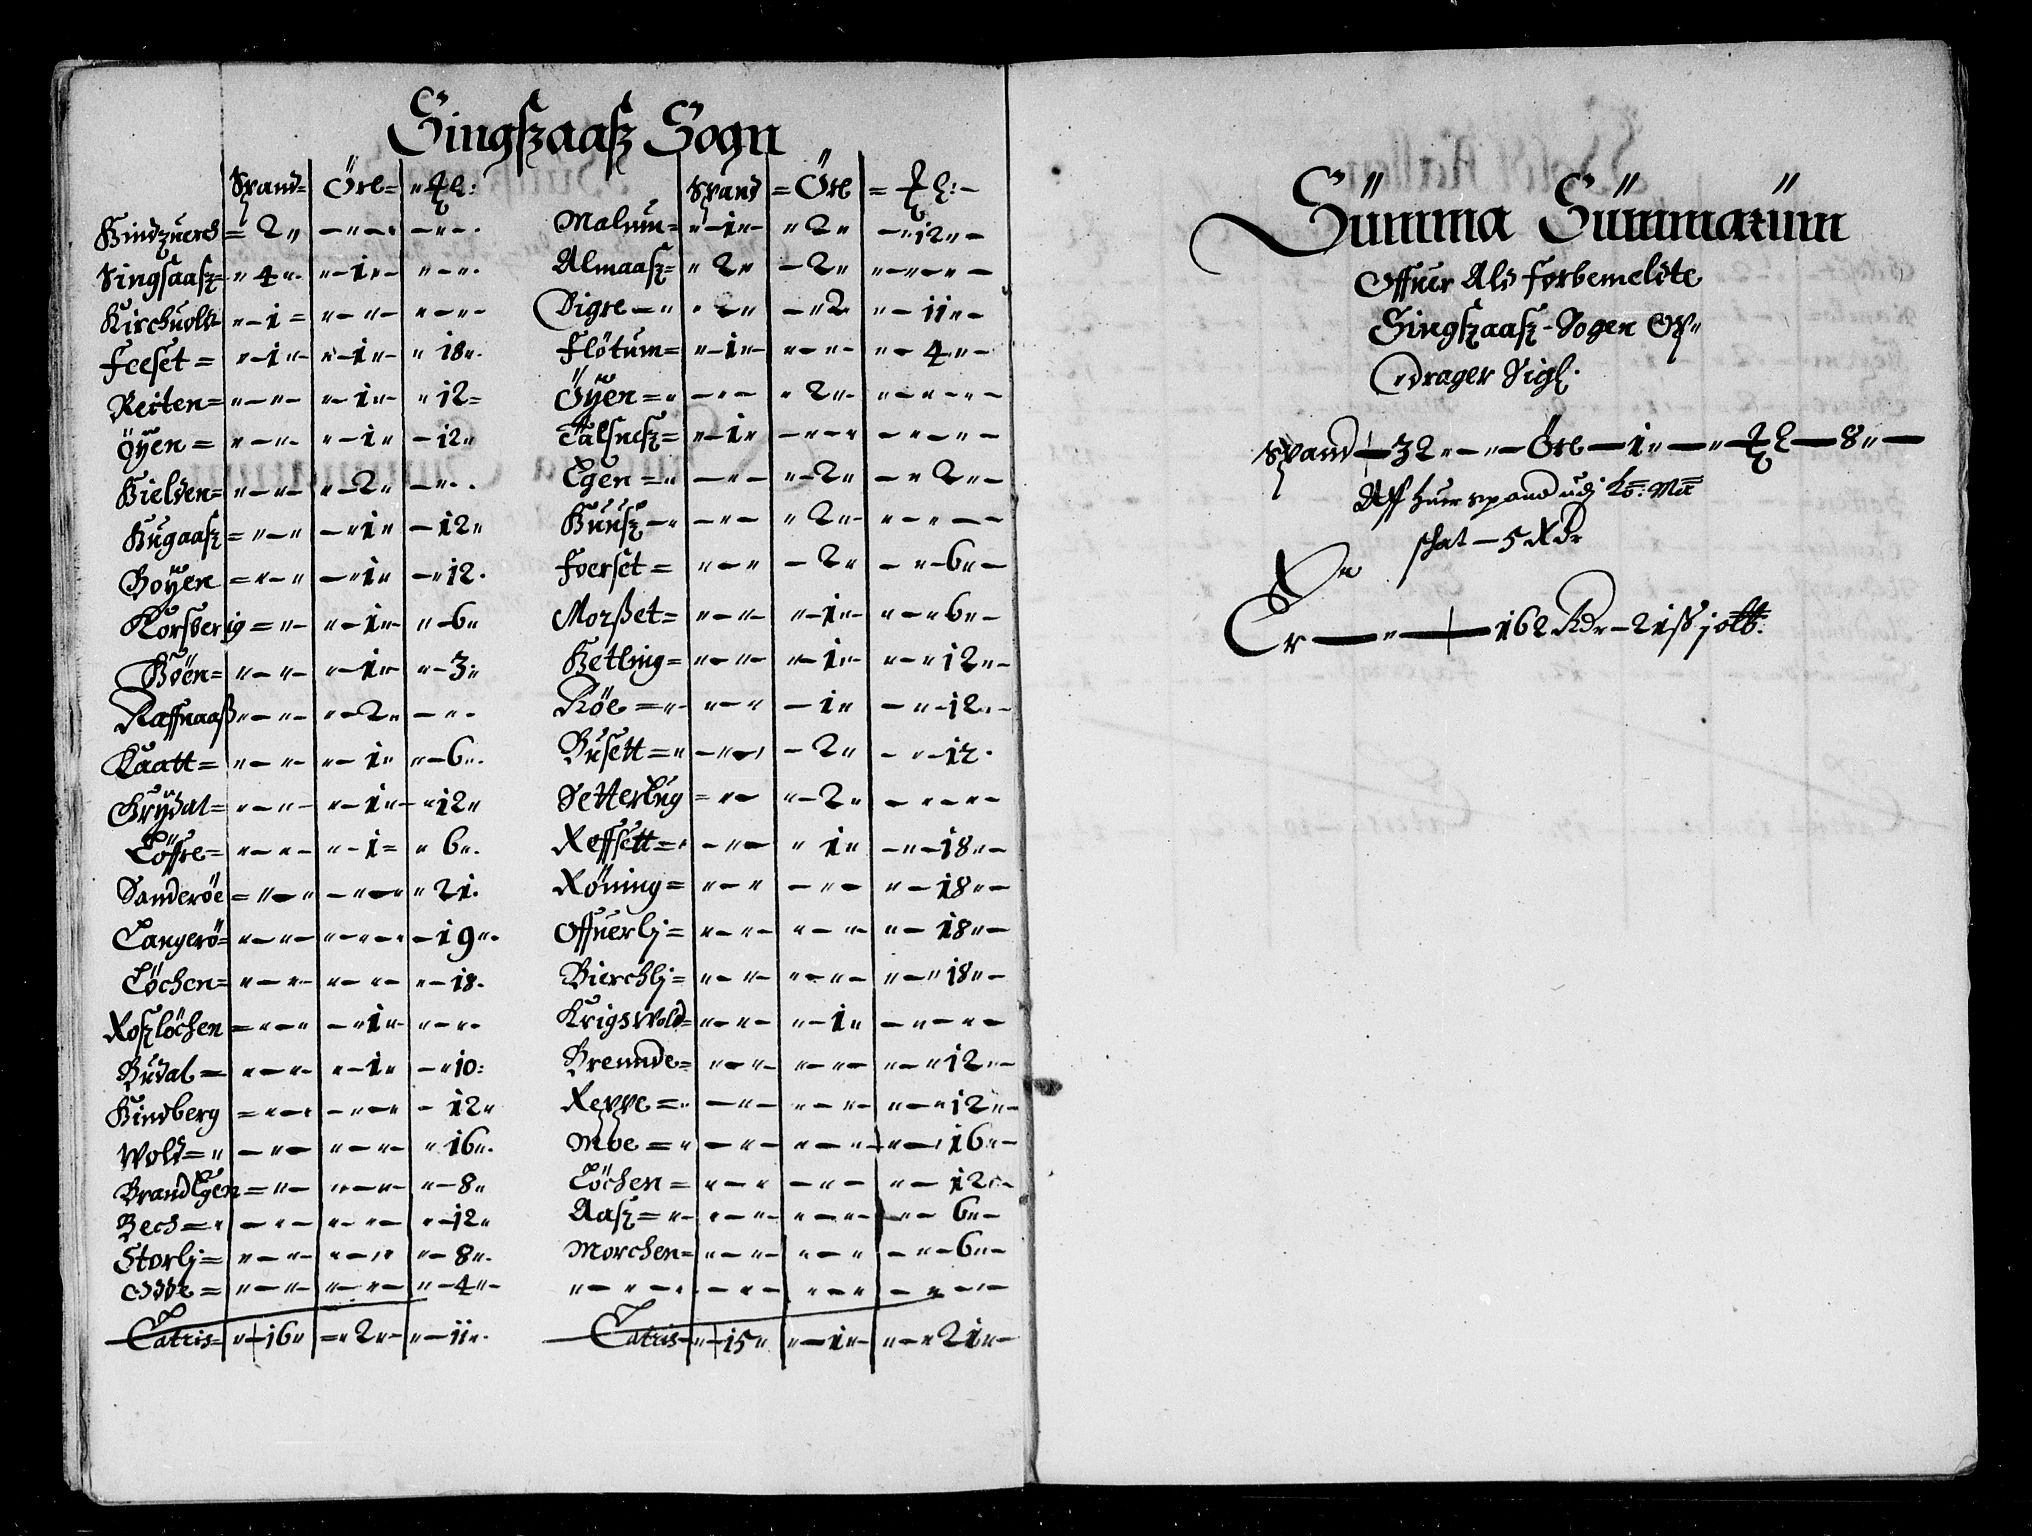 Singszaasz Sogn
Spand= Öre= " ℔:
Hindzuerd = 2 "
Singsaasz= " 4 " 1 "
Kirchuold " 1 =
Feeset = " 1 " " 1 " " 18 "
Reiten= " 1 " " 12 =
Öÿen = " 1 " 12 "
Hielden= " 2 "
Hugaasz = " 1 " 12 "
Boÿen = " 1 " 12 .
Korsberig = " 1 " " 6 "
Böen= " 1 " " 3 :
Raffnaasz " 2 "
Kaatt = " 1 " " 6 "
Grÿdal= " 1 " " 12 "
Löffre= " 1 = " 6 "
Sanderöe = " 21 .
Langerö= 19 "
Löchen= " 18 .
Roszlöchen = " 1 "
Budal = " 1 " " 10 :
Hindberg = 12 "
Wold = " " 16 "
BrandEgen = " 8 "
Bech = " " 12 "
Storlj = " 8 "
Odde = " 4 "
Lateris= " 16 " = " 2 " " 11 "
Spand = Öre = ℔:
Malum= " 1 " " 2 " " 12 "
Almaasz= " 2 " 2 "
Digre " 2 " " 2 " 11 "
Flötum= " 1 " " 4 "
Öÿen = " 2 "
Talsnesz= " 1 "
Egen = " 2 " " 2 "
Huusz " 2 "
Foerset = 2 " " 6 "
Morszet= " 1 " " 6 "
Hetling= " 1 " " 12 "
Röe = 1 " " 12 "
Busett = " 2 " " 12 .
SetterEng = " 2 "
Reffsett = " 1 " 18 "
Röning= " 18 "
Offuerlj = " 18 "
Bierchlj= " 18 "
Krigswold= " 1 "
Bremnde= " 12 "
Reppe = " 12 "
Moe = " 16 "
Löchen = " 12 "
Aasz = " 6 "
Morchen= " 6 "
Lateris " 15 " " 1 " " 21 "
Summa Summarum
Offuer Als forbemeldte
Singszaasz-Sogen Op"
"drager Sigl.
Spand 32 " Öre 1 " ℔ 8 "
Aff huer spand udj Ko: Ma:
schat 5 Rdr
Er " 162 Rdr 21 sz